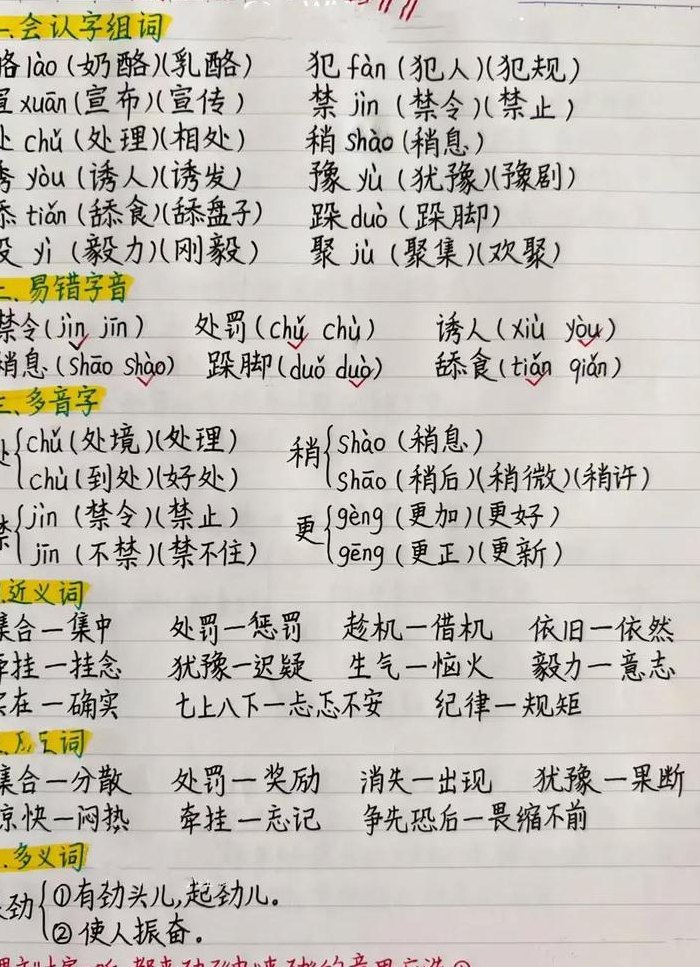 一、会认字组词
酪 lào (奶酪)(乳酪) 犯 fàn (犯人)(犯规)
宣 xuān (宣布)(宣传) 禁 jìn (禁令)(禁止)
处 chǔ (处理)(相处) 稍 shào (稍息)
诱 yòu (诱人)(诱发) 豫 yù (犹豫)(豫剧)
舔 tiǎn (舔食)(舔盘子) 跺 duò (跺脚)
毅 yì (毅力)(刚毅) 聚 jù (聚集)(欢聚)
二、易错字音
禁令(jìn jīn) 处罚(chǔ chù) 诱人(xiù yòu)
稍息(shāo shào) 跺脚(duǒ duò) 舔食(tiǎn qiǎn)
三、多音字
处 chǔ (处境)(处理) 稍 shào (稍息)
chù (到处)(好处) shāo (稍后)(稍微)(稍许)
禁 jìn (禁令)(禁止) 更 gèng (更加)(更好)
jīn (不禁)(禁不住) gēng (更正)(更新)
近义词
集合—集中 处罚—惩罚 趁机—借机 依旧—依然
牵挂—挂念 犹豫—迟疑 生气—恼火 毅力—意志
实在—确实 七上八下—忐忑不安 纪律—规矩
词
集合—分散 处罚—奖励 消失—出现 犹豫—果断
凉快—闷热 牵挂—忘记 争先恐后—畏缩不前
多义词
劲 ①有劲头儿,起劲儿。
②使人振奋。